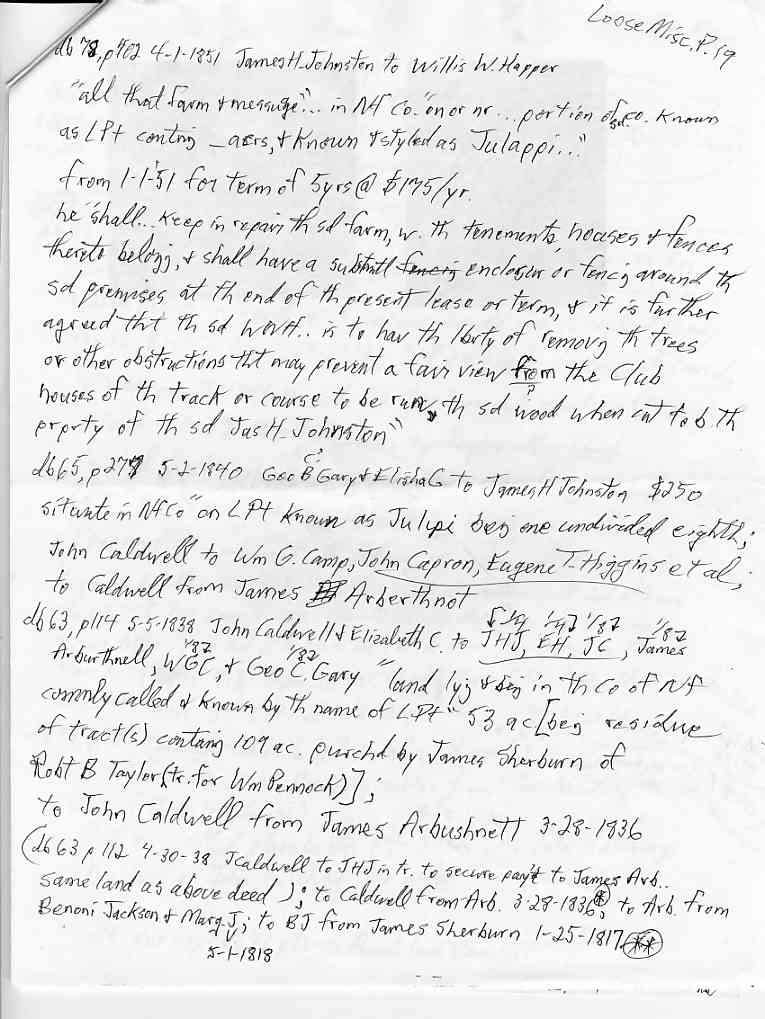 Loose Misc, P. 19
db 78, p702 4-1-1851 James H. Johnston to Willis W. Happer
"all that farm & messuage"... in Nf Co. "on or nr... portion of sd. co. known
as L Pt contng _ acrs, & known & styled as Julappi..."
from 1-1-51 for term of 5 yrs @ $175/yr.
he "shall... keep in repair th sd farm, w. th tenements, houses & fences
thereto belong, & shall have a substntl fencig enclosur or fencg around th
sd premises at th end of th present lease or term, & it is further
agreed tht th sd WWH.. is to hav th lbrty of removig th trees
or other obstructions tht may prevent a fair view from the Club
?
houses of th track or course to be run, th sd wood when cut to b th
prprty of th sd Jas H. Johnston"
C?
db65, p277 5-2-1840 Geo B Gary & Elisha G to James H Johnston $250
situate in Nf Co "on L Pt known as Julipi beig one undivided eighth;
John Caldwell to Wm G. Camp, John Capron, Eugene T. Higgins et al;
to Caldwell from James Arberthnot
db63, p114 5-5-1838 John Caldwell & Elizabeth C. to JHJ, EH, JC, James
Arburthnell, WGC, & Geo C. Gary "land lyg & beig in th Co of Nf
commnly called & known by th name of L Pt" 53 ac [beig residue
of tract(s) containg 109 ac. purchd by James Sherburn of
Robt B Taylor (tr. for Wm Pennock)];
to John Caldwell from James Arbushnett 3-28-1836
(db 63 p 112 4-30-38 J Caldwell to JHJ in tr. to secure paymt to James Arb..
same land as above deed); to Caldwell from Arb. 3-28-1836 *; to Arb. from
Benoni Jackson & Marg. J; to BJ from James Sherburn 1-25-1817 **
5-1-1818